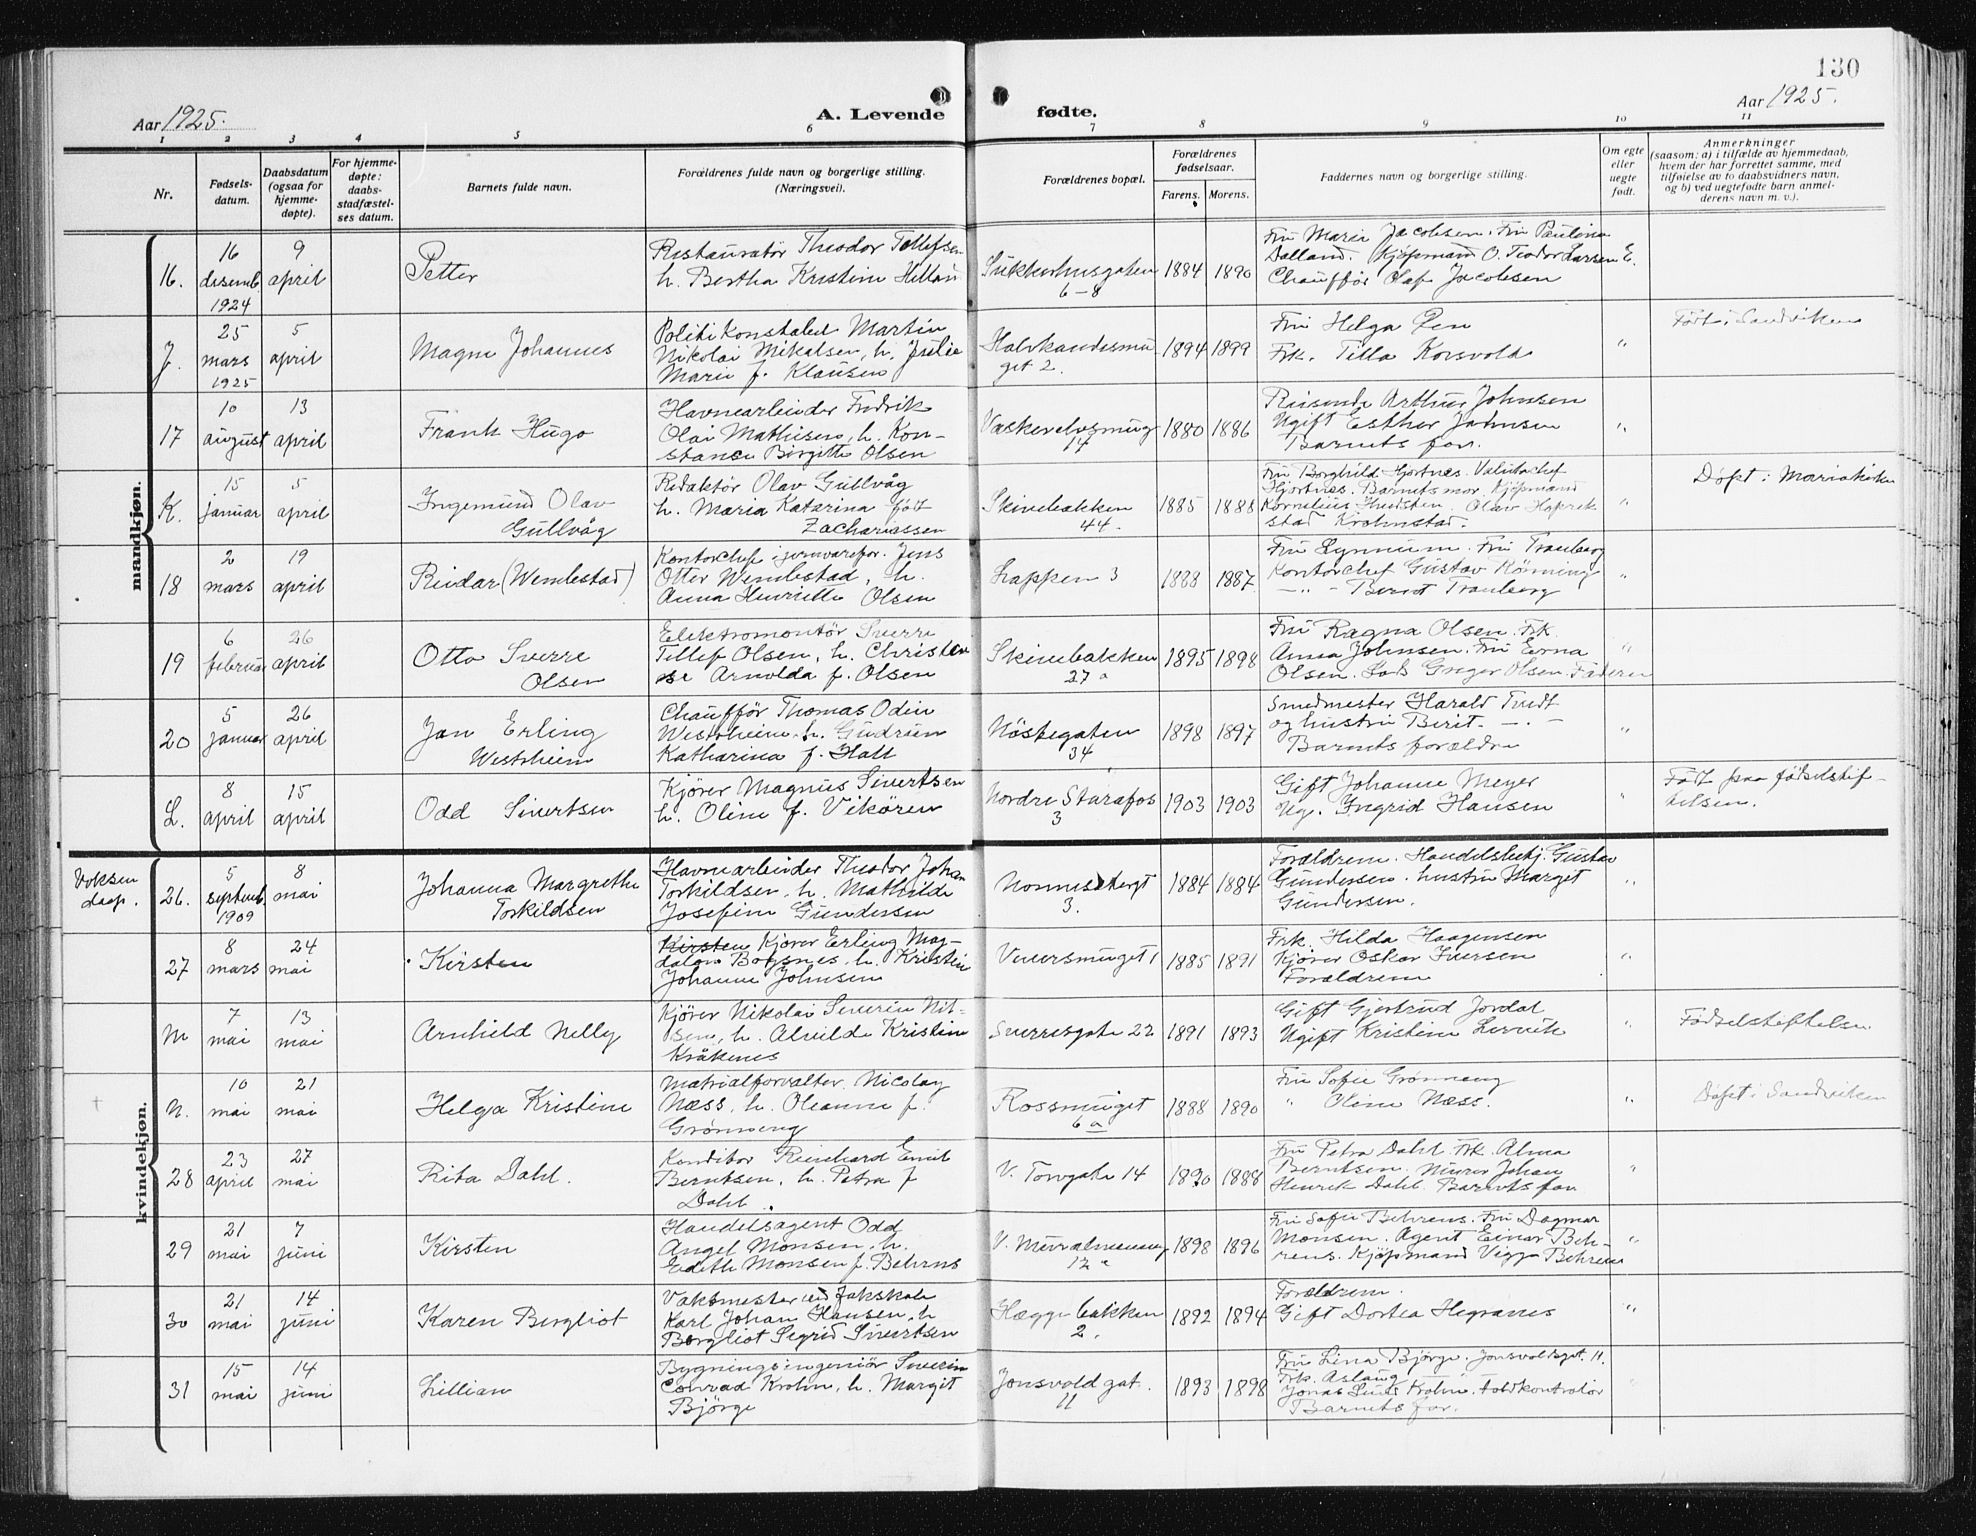 130
Aar 1925.
A. Levende
fødte.
Aar 1925.
1 2 3 4 5 6 7 8 9 10 11
Nr.
Fødsels-
datum.
Daabsdatum
(ogsaa for
hjemme-
døpte).
For hjemme-
døpte:
daabs-
stadfæstel-
ses datum.
Barnets fulde navn.
Forældrenes fulde navn og borgerlige stilling.
(Næringsvei).
Forældrenes bopæl.
Forældrenes
fødselsaar.
Farens. Morens.
Faddernes navn og borgerlige stilling.
Om egte
eller
uegte
født.
Anmerkninger
(saasom: a) i tilfælde av hjemmedaab,
hvem der har forrettet samme, med
tilføielse av to daabsvidners navn,
og b) ved uegtefødte barn anmel-
derens navn m. v.).
mandkjøn.
16.
16
desemb.
1924
9
april
Petter
Restauratør Theodor Tollefsen
h. Bertha Kristine
Sukkerhusgaten
6-8
1884 1890
Fru Maria Jacobsen. Fru Pauline
Dalland. Kjøpmand O. Teodor Larsen
Chauffør Olaf Jacobsen
E.
J.
25
mars
1925
5
april
Magne Johannes
Politikonstabel Martin
Nikolai Mikalsen, h. Julie
Marie f. Klausen
Halvkandesmu
get 2.
1894 1899
Fru Helga
Frk. Tilla Korsvold
"
Født i Sandviken
17
10
august
13
april
Frank Hugo
Havnearbeider Fredrik
Olai Mathisen, h. Kon-
stance Birgitte Olsen
Vaskerelvsmug
17
1880 1886
Reisende Arthur Johnsen
Ugift Esther Johnsen
Barnets far.
"
K.
15
januar
5
april
Ingemund Olav
Gullvåg
Redaktør Olav Gullvåg
h. Maria Katarina født
Zachariassen
Skivebakken
44.
1885 1888
Fru Borghild Hjortnes. Valutachef
Hjortnes. Barnets mor. Kjøpmand
Kornelius Olav
stad Krohnstad.
"
Døpt i Mariakirken
18
2
mars
19
april
Reidar (Wembestad)
Kontorchef i jernvarefor. Jens
Otter Wembestad, h.
Anna Henriette Olsen
Lappen 3
1888 1887.
Fru Lynnum. Fru Tranberg
Kontorchef Gustav Rönning
-"- Bernt Tranberg
"
19
6
februar
26
april
Otto Sverre
Olsen
Elektromontør Sverre
Tellef Olsen, h. Christen
se Arnolda f. Olsen
Skivebakken
27a
1895 1898
Fru Ragna Olsen. Frk.
Anna Johnsen. Fru Erna
Olsen. Greger Olsen. Faderen
"
20
5
januar
26
april
Jan Erling
Westrheim
Chauffør Thomas Odin
Westrheim, h. Gudrun
Katharina f. Hall
Nöstegaten
34
1898 1897
Smedmester Harald Tvedt
og hustru Berit -.-
Barnets forældre
"
L.
8
april
15
april
Odd Sivertsen
Kjører Magnus Sivertsen
h. Oline f. Vikören
Nordre Starefos
3
1903 1903
Gift Johanne Meyer
Ug. Ingrid Hansen
"
Født paa fødselstif-
telsen.
kvindekjøn.
Voksen
daap.
26.
5
septemb.
1909
8
mai
Johanna Margrethe
Torkildsen
Havnearbeider Theodor Johan
Torkildsen, h. Mathilde
Josefine Gundersen
3.
1884 1884
Forældrene. Handelsbetj. Gustav
Gundersen. hustru Marget
Gundersen.
"
27
8
mars
24
mai
Kirsten
Kirsten Kjører Erling Mag-
dalon Bogsnes, h. Kristine
Johanne Johnsen
1885 1891
Frk. Hilda Haagensen
Kjører Oskar Iversen
Forældrene
"
M
7
mai
13
mai
Arnhild Nelly
Kjører Nikolai Severin Nil-
sen, h. Alvilde Kristine
Kråkenes
Sverresgate 22
1891 1893
Gift Gjertrud Jordal
Ugift Kristine Lervik
"
Fødselstiftelsen
N.
10
mai
21
mai
Helga Kristine
Matrialforvalter Nicolay
Næss, h. Oleanne f.
Grönneng
Rossmuget
6a
1888 1890
Fru Sofie Grønneng
" Oline Næss.
"
Døpt i Sandviken
28
23
april
27
mai
Rita Dahl.
Konditor Reinhard Emil
Berntsen, h. Petra f
Dahl.
V. Torvgate 14
1890 1888
Fru Petra Dahl. Frk. Alma
Berntsen. Murer Johan
Henrik Dahl. Barnets far
"
29
21
mai
7
juni
Kirsten
Handelsagent Odd
Angel Monsen, h.
Edith Monsen f. Behrens
V. Muralmenning
12a
1898 1896
Fru Sofie Behrens. Fru Dagmar
Monsen. Agent Einar Beh-
rens. Kjøpmand Viggo Behrens
"
30
21
mai
14
juni
Karen Bergliot
Vaktmester ved fakskole
Karl Johan Hansen, h.
Bergliot Segrid Sivertsen
Hæggebakken
2.
1892 1894
Forældrene.
Gift Dortea Hegranes
"
31
15
mai
14
juni
Lillian
Bygningsingeniör Severin
Conrad Krohn, h. Margit
Björge
Jonsvoldgat.
11
1893 1898
Fru Lina Björge. Jonsvoldsgt. 11.
Frk. Aslaug
Jonas Lund Krohn. Toldkontrolør
Barnets far.
"